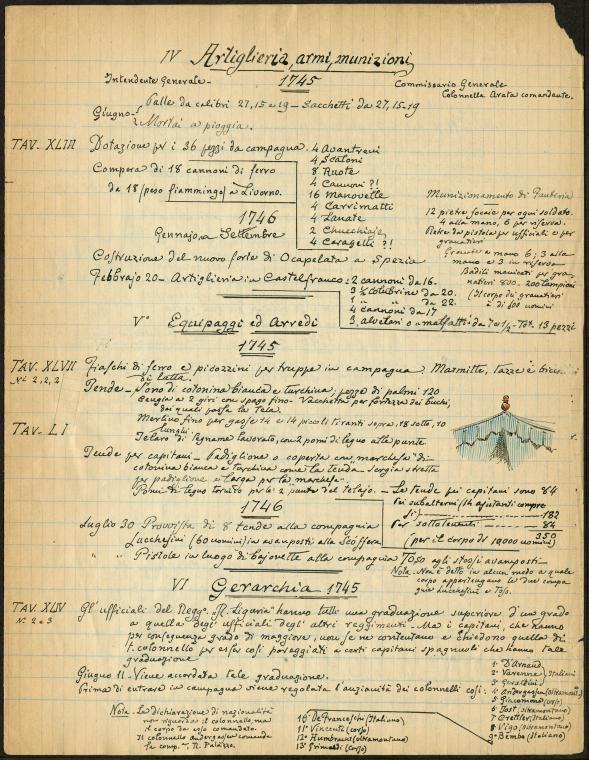 IV Artiglieria, armi, munizioni
Intendente Generale -
1745
Commissario Generale -
Colonnella Arata comandante.
Giugno -
Palle da calibri 27, 15 e 19 - Sacchetti da 27, 15 - 19
Mortai a pioggia.
TAV. XLIII
Dotazione per i 36 pezzi da campagna.
4 Avantreni
4 Scaloni
8 Ruote
4 Cannoni ?!
16 Manovelle
4 Carrimatti
4 Lanate
2
4 Caragelli ?!
Compera di 18 cannoni di ferro
da 18 (peso fiammingo) a Livorno.
1746
Gennajo a Settembre
Munizionamento di Fanteria
12 pietre focaie per ogni soldato.
4 alla mano, 6 per riserva.
Pietre da pistola per ufficiali e per
granatieri
Granate a mano 6; 3 alla
mano e 3 in riserva
manicati per gra-
natieri 800. 200 tampioni
(Il corpo dei granatieri
è di 600 uomini
Costruzione del nuovo forte di Ocapelata a Spezia
Febbrajo 20 - Artiglieria in Castelfranco:
2 cannoni da 16.
3 ½ colubrine da 20.
1 " " da 22.
4 cannoni da 17
3 alvetari o malfatti da 7 e ½ - Tot. 13 pezzi
V° Equipaggi ed Arredi
1745
TAV. XLVII
Ni 2, 2, 2
Fiaschi di ferro e picozzini per truppe in campagna. Marmitte, tazze e
di latta.
Tende - Sono di cotonina bianca e turchina, pezze di palmi 120
a 2 giri con spago fino - Vacchetta per fortezza dei buchi,
dai quali passa la tela.
TAV. LI
Merlino fino per gasse 14 e 14 piccoli tiranti sopra, 18 sotto, 10
lunghi.
Telaro di legname lavorato, con 2 pomi di legno alle punte
Tende per capitani - Padiglione o coperta con "marchesa" di
cotonina bianca e turchina come la tenda - sergia stretta
per padiglione e larga per la marchesa -
Pomi di legno tornito per le 2 punte del telajo. -
Le tende pei capitani sono 84
Pei subalterni (14 ajutanti compre
si) - 182
Per sottotenenti - 84
350
(per il corpo di 10,000 uomini)
1746
Luglio 30 Provvista di 8 tende alla compagnia
Lucchesini (60 uomini) in avamposti alla Scoffera
" " Pistole in luogo di bajonette alla compagnia Toso agli stessi avamposti -
Nota - Non è detto in alcun modo a quale
corpo appartengano le due compa
gnie Lucchesini e Toso.
VI Gerarchia 1745
TAV. XLIV
N. 2 e 3
Gl' ufficiali del Regg°. R. Liguria hanno tutti una graduazione superiore d'un grado
a quella degl' ufficiali degl' altri reggimenti - Ma i capitani, che hanno
per conseguenza grado di maggiore, non se ne contentano e chiedono quella di
t. colonnello per esser così pareggiati a certi capitani spagnuoli che hanno tale
graduazione
Giugno 11 - Viene accordata tale graduazione.
Prima di entrare in campagna viene regolata l'anzianità dei colonnelli così:
1° D'Arnaud
2° Varenna (Italiani
3° Geraldini
4° (oltramont.)
5° Giacomone (corso)
6° Jost (oltramontano)
7° Crettler (Italiano)
8° Vigo (oltramontano)
9° Bembo (Italiano)
10° De Franceschi (Italiano)
11° Vincenti (corso)
12° Humbracht (oltramontano)
13° Grimaldi (corso)
Nota - La dichiarazione di nazionalità
non riguarda il colonnello, ma
il corpo da esso comandato.
Il colonnello comanda
la comp.a R. Palazzo.